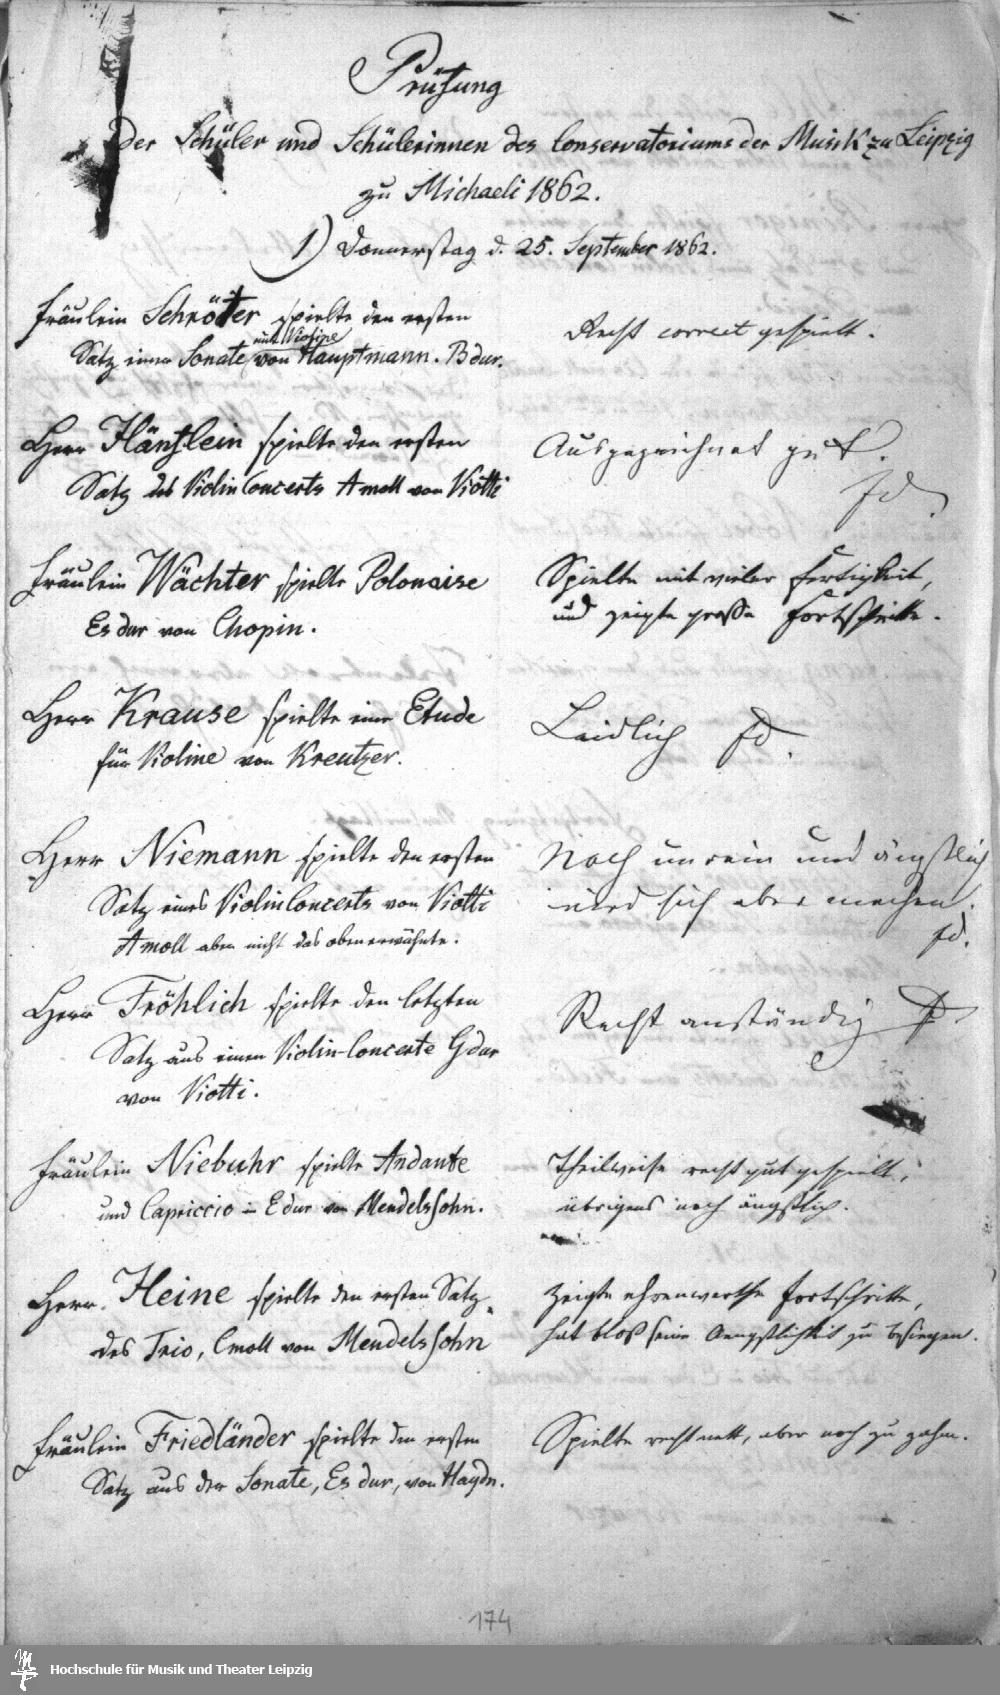 Prüfung
der Schüler und Schülerinnen des Conservatoriums der Musik zu Leipzig
zu Michaeli 1862.
1) Donnerstag d. 25. September 1862.
Fräulein Schröter spielte den ersten
Satz einer Sonate mit Violine von Hauptmann. B dur.
Recht correct gespielt.
Herr Hänflein spielte den ersten
Satz des Violin Concerts A moll von Viotti
Ausgezeichnet gut.
Fd.
Fräulein Wächter spielte Polonaise
Es dur von Chopin.
Spielte mit vieler Fertigkeit,
und zeigte große Fortschritte.
Herr Krause spielte eine Etude
für Violine von Kreutzer.
Leidlich Fd.
Herr Niemann spielte den ersten
Satz eines Violin Concerts von Viotti
A moll aber nicht das obenerwähnte.
Noch unrein und ängstlich
wird sich aber machen.
Fd.
Herr Fröhlich spielte den letzten
Satz aus einem Violin-Concerte G dur
von Viotti.
Recht anständig
Fräulein Niebuhr spielte Andante
und Capriccio in E dur von Mendelssohn.
Theilweise recht gut gespielt,
übrigens noch ängstlich.
Herr Heine spielte den ersten Satz
des Trio, C moll von Mendelssohn
Zeigte ehrenwerthe Fortschritte,
hat bloß seine Aengstlichkeit zu besiegen.
Fräulein Friedländer spielte den ersten
Satz aus der Sonate, Es dur, von Haydn.
Spielte recht nett, aber noch zu zahm.
174
Hochschule für Musik und Theater Leipzig